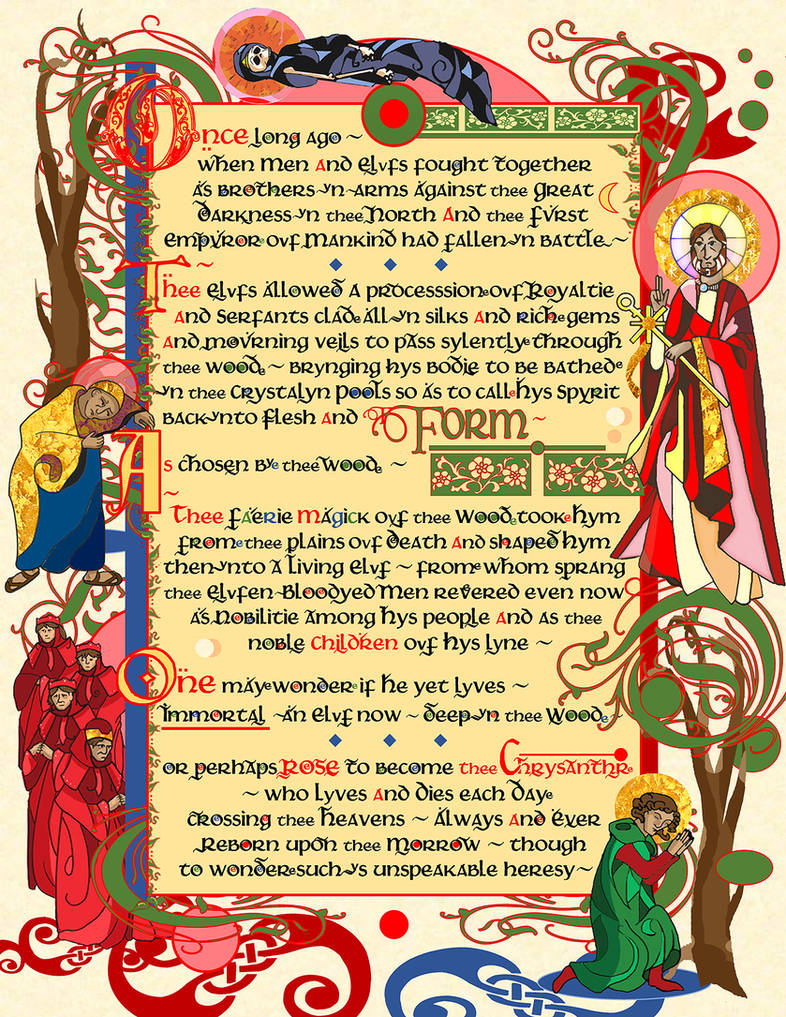 Once long ago ~
when men and elvfs fought together
as brothers~yn~arms against thee great
darkness~yn thee North and thee fyrst
empyror ovf Mankind had fallen~yn battle~
Thee elvfs allowed a processsion ovf Royaltie
and serfants clad all~yn silks and rich gems
and movrning veils to pass sylently through
thee wood ~ brynging hys bodie to be bathed
yn thee crystalyn pools so as to call hys spyrit
back~ynto flesh and Form ~
As chosen bye thee wood ~
~
Thee faerie magick ovf thee wood took hym
from thee plains ovf death and shaped hym
then~ynto a living elvf ~ from whom sprang
thee elvfen~bloodyed men revered even now
as nobilitie among hys people and as thee
noble children ovf hys lyne ~
One may wonder if he yet lyves ~
Immortal ~an elvf now ~ deep~yn thee wood ~
or perhaps rose to become thee Chrysanthr
~ who lyves and dies each day
crossing thee heavens ~ always and ever
reborn upon thee morrow ~ though
to wonder such~ys unspeakable heresy~